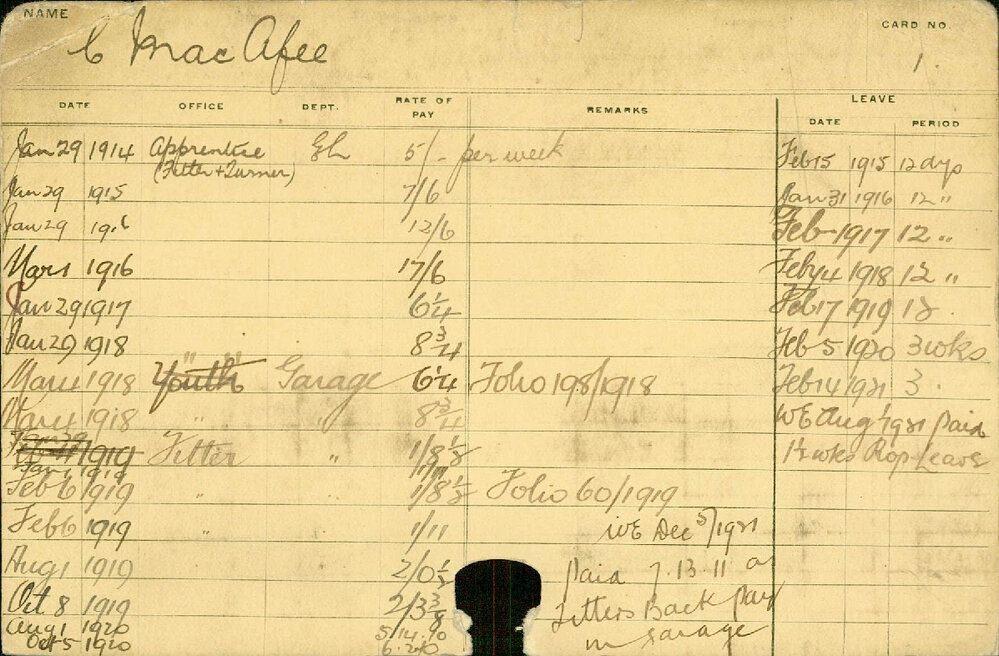 NAME
CARD NO.
C MacAfee
1.
DATE OFFICE DEPT. RATE OF PAY REMARKS LEAVE
DATE PERIOD
Jan 29 1914 Apprentice Eh 5/- per week Feb 15 1915 12 dys
(Fitter + Turner)
Jan 29 1915 7/6 Jan 31 1916 12 "
Jan 29 1916 12/6 Feb - 1917 12 "
Mar 1 1916 17/6 Feby 4 1918 12 "
Jan 29 1917 6 1/4 Feb 17 1919 12
Jan 29 1918 8 3/4 Feb 5 1920 3 wks
Mar 4 1918 Youth " " Garage 6 1/4 Folio 198/1918 Feb 14 1921 3
Mar 4 1918 " 8 3/4 WE Aug 1921 Paid
1919 Fitter " 1/8 1/2 1 1/2 wks Prop Leave
Jan 1 1919 1/11
Feb 6 1919 " 1/8 1/2 Folio 60/1919
Feb 6 1919 " 1/11 WE Dec 5/1921
Aug 1 1919 2/0 1/2 Paid 7.13.11 as
Oct 8 1919 2/3 3/8 Fitters Back Pay
Aug 1 1920 5/14.
Oct 5 1920 in Garage